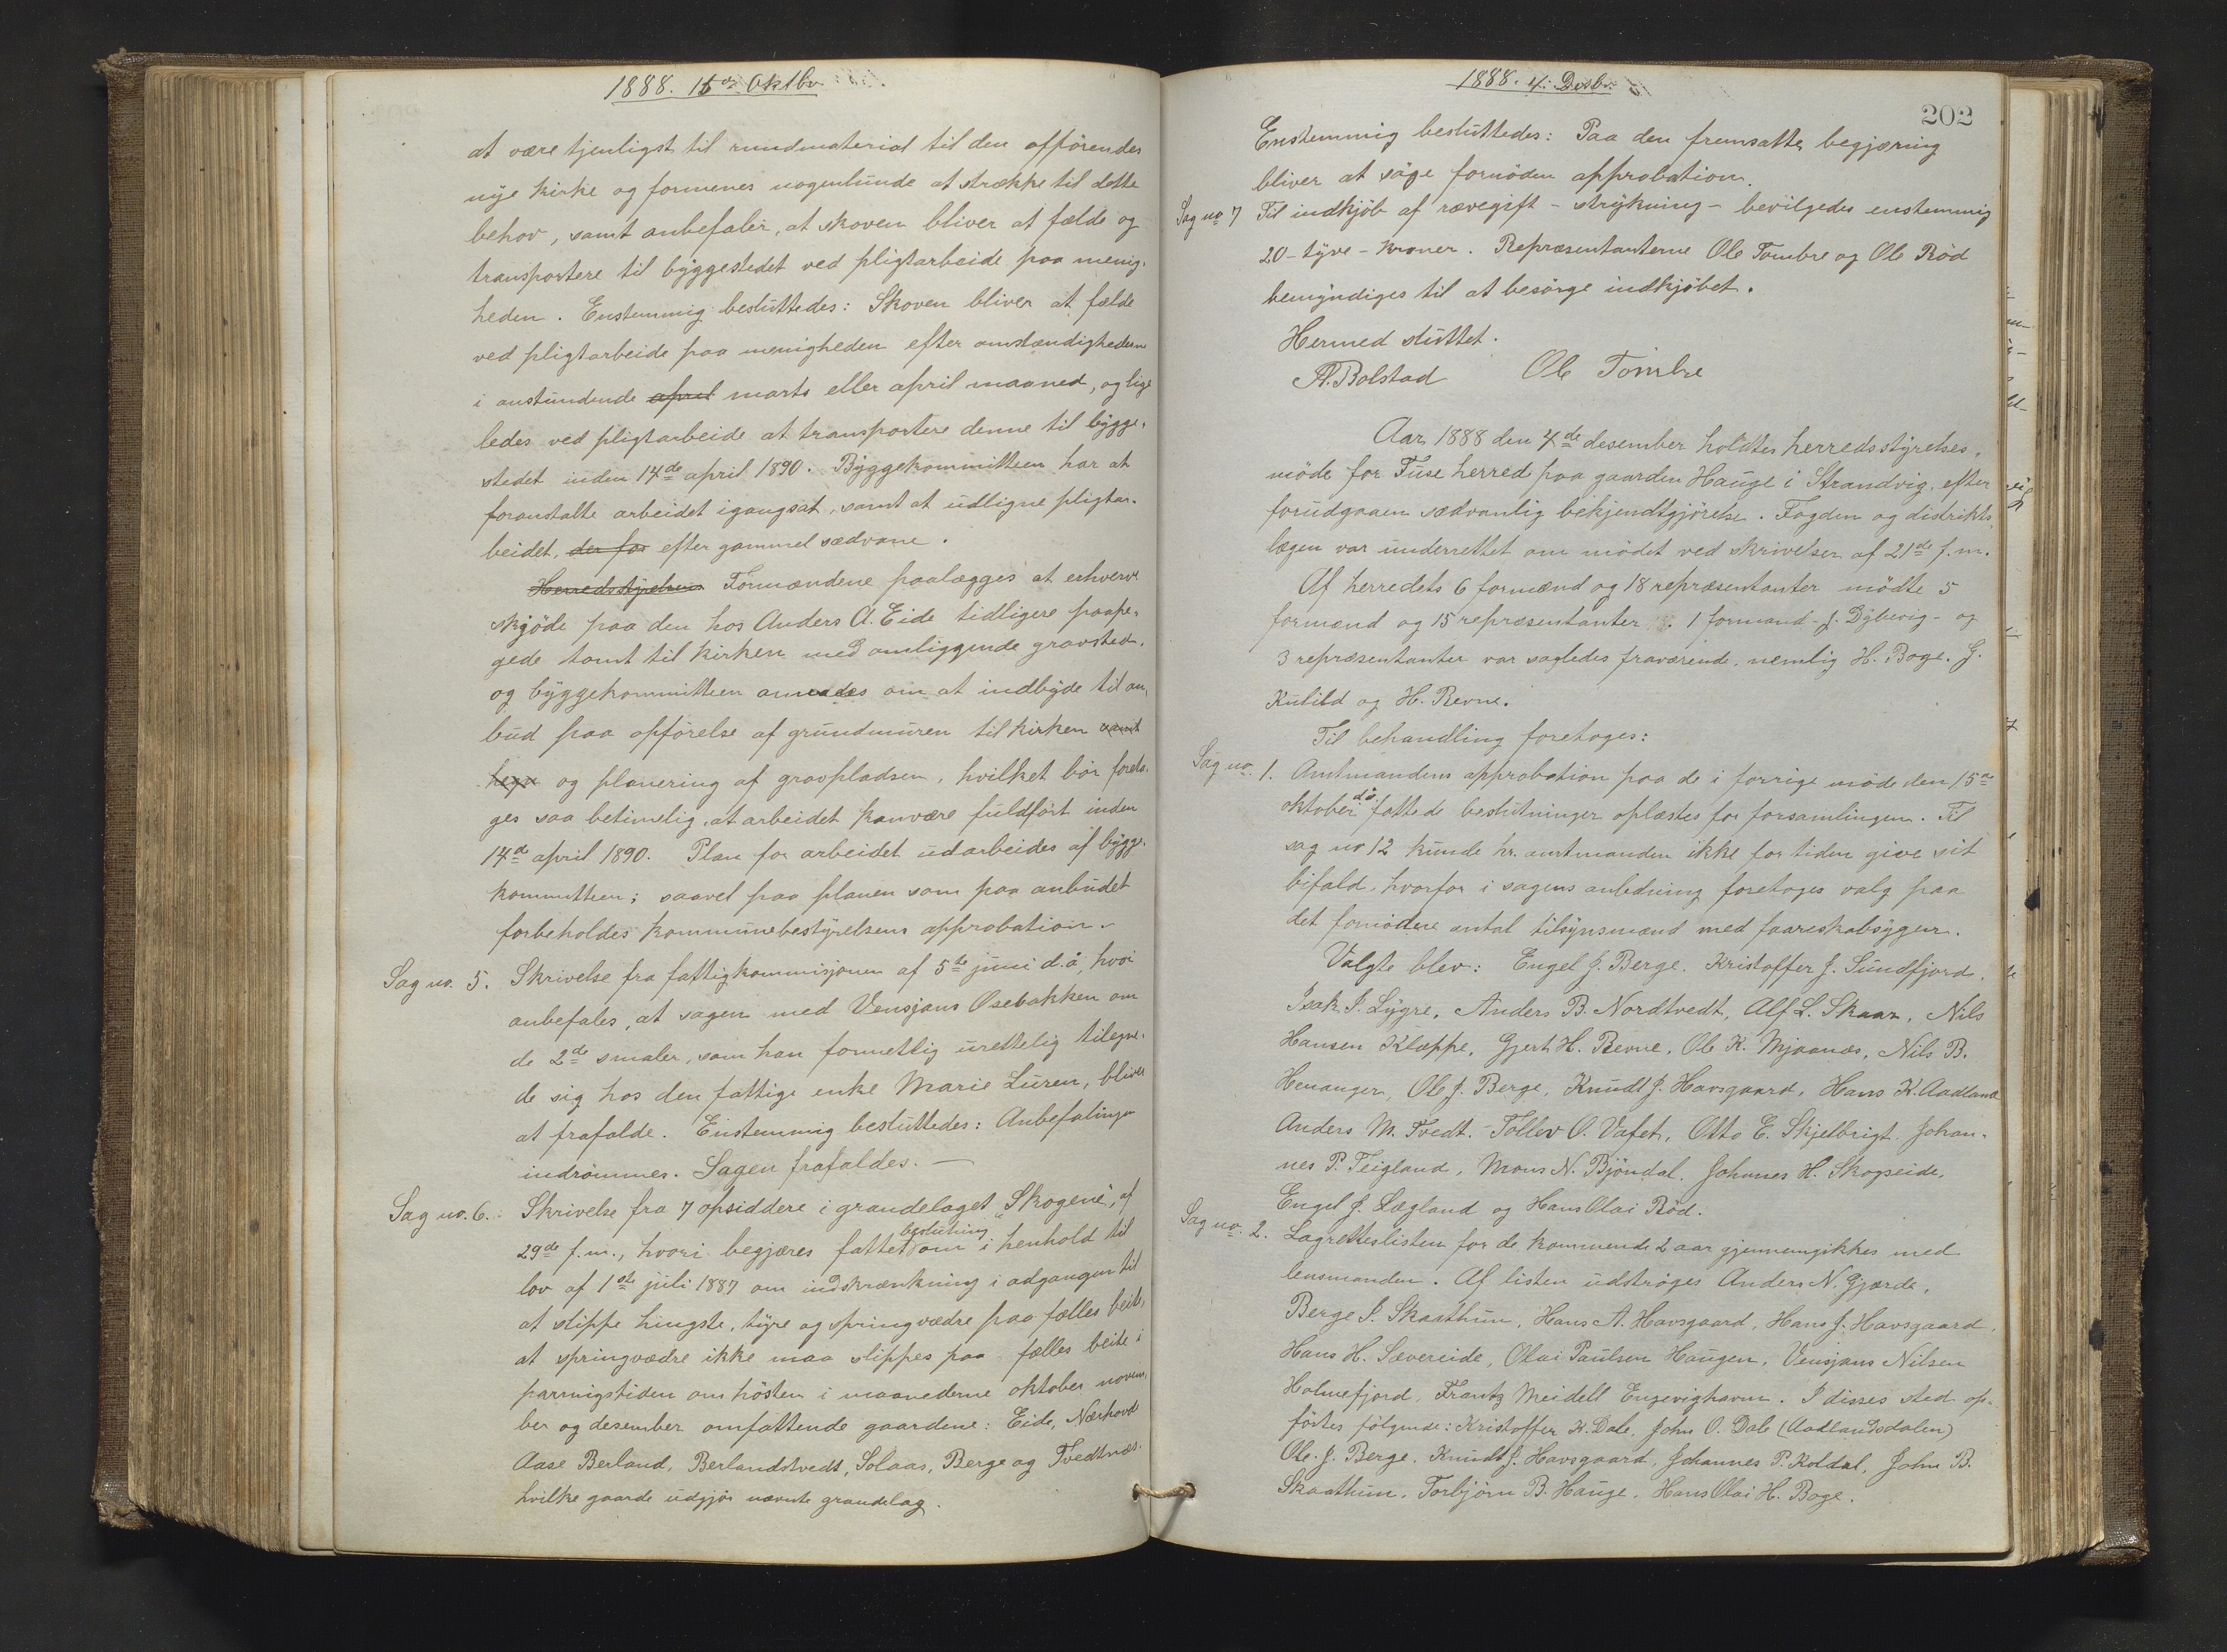 1888. 15de Oktbr.
at være tjenligst til rundmaterial til den opførendes
nye kirke og formenes nogenlunde at strække til dette
behov, samt anbefaler, at skoven bliver at fælde og
transportere til byggestedet ved pligtarbeide paa menig-
heden. Enstemmig besluttedes: Skoven bliver at fælde
ved pligtarbeide paa menigheden efter omstændighederne
i anstundende april marts eller april maaned, og lige
ledes ved pligtarbeide at transportere denne til bygge-
stedet inden 14de april 1890. Byggekommitteen har at
foranstalte arbeidet igangsat, samt at udligne pligtar-
beidet, der for efter gammel sædvane.
Herredsstyrelsen Formændene paalægges at erhverve
skjøde paa den hos Anders A. Eide tidligere paape-
gede tomt til kirken med omliggende gravsted,
og byggekommitteen anmodes om at indbyde til an-
bud paa opførelse af grundmuren til kirken samt
hegn og planering af gravpladsen, hvilket bør foreta-
ges saa betimelig, at arbeidet kan være fuldført inden
14de april 1890. Plan for arbeidet udarbeides af bygge-
kommitteen; saavel paa planen som paa anbudet
forbeholdes kommunebestyrelsens approbation.
Sag no. 5. Skrivelse fra fattigkommisjonen af 5te juni d.å, hvori
anbefales, at sagen med Vensjans Osebakken om
de 2de smaler, som han formettlig urettelig tilegne-
de sig hos den fattige enke Marie Luren, bliver
at frafalde. Enstemmig besluttedes: Anbefalingen
indrømmes. Sagen frafaldes. —
Sag no. 6. Skrivelse fra 7 opsiddere i grandelaget "Skogene", af
29de f.m., hvori begjæres fattet beslutning om i henhold til
lov af 1ste juli 1887 om indskrænkning i adgangen til
at slippe hingste, tyre og springvædre paa fælles beite,
at springvædre ikke maa slippes paa fælles beite i
parringstiden om høsten i maanederne oktober novem-
ber og desember omfattende gaardene: Eide, Nærhovd
Aase Berland, Berlandstvedt, Solaas, Berge og Tvedtnæs.
hvilke gaarde udgjør nævnte grandelag.
1888. 4. Desbr.
202
Enstemmig besluttedes: Paa den fremsatte begjæring
bliver at søge fornøden approbation.
Sag no 7 Til indkjøb af rævegift - strykning - bevilgedes enstemmig
20 - tyve - kroner. Repræsentanterne Ole Tombre og Ole Rød
bemyndiges til at besørge indkjøbet.
Hermed sluttet.
A. Bolstad Ole Tombre
Aar 1888 den 4de desember holdtes herredsstyrelses-
møde for Fuse herred paa gaarden Hauge i Strandvig, efter
forudgaaen sædvanlig bekjendtgjørelse. Fogden og distrikts-
lægen var underrettet om mødet ved skrivelser af 21de f.m.
Af herredets 6 formænd og 18 repræsentanter mødte 5
formænd og 15 repræsentanter. 1 formand - J. Dybevig - og
3 repræsentanter var sagledes fraværende, nemlig H. Boge. G.
Kulild og H. Revne.
Til behandling foretoges:
Sag no. 1. Amtmandens approbation paa de i forrige møde den 15de
oktober då. fattede beslutninger oplæstes for forsamlingen. Til
sag no 12 kunde hr. amtmanden ikke for tiden give sit
bifald, hvorfor i sagens anledning foretoges valg paa
det fornødne antal tilsynsmænd med faareskabsygen.
Valgte blev: Engel J. Berge. Kristoffer J. Sundfjord,
Isak I. Lygre, Anders B. Nordtvedt, Alf L. Skaar, Nils
Hansen Kloppe, Gjert H. Revne, Ole K. Mjaanæs, Nils B.
Henanger, Ole J. Berge, Knudt J. Havsgaard, Hans K. Aadland
Anders M. Tvedt. Tollev O. Vafet, Otto E. Skjelbrigt. Johan-
nes P. Teigland, Mons N. Bjöndal. Johannes H. Skogseide,
Engel J. Lægland og Hans Olai Rød.
Sag no. 2. Lagretteslisten for de kommende 2 aar gjennemgikkes med
lensmanden. Af listen udstrøges Anders N. Gjærde,
Berge I. Skaathun, Hans A. Havsgaard, Hans J. Havsgaard,
Hans H. Sævereide, Olai Paulsen Haugen, Vensjans Nilsen
Holmefjord, Frantz Meidell Engevighavn. I disses sted op-
førtes følgende: Kristoffer K. Dale, John O. Dale (Aadlandsdalen)
Ole J. Berge. Knudt J. Havsgaard, Johannes P. Koldal, John B.
Skaathun, Torbjörn B. Hauge, Hans Olai H. Boge.